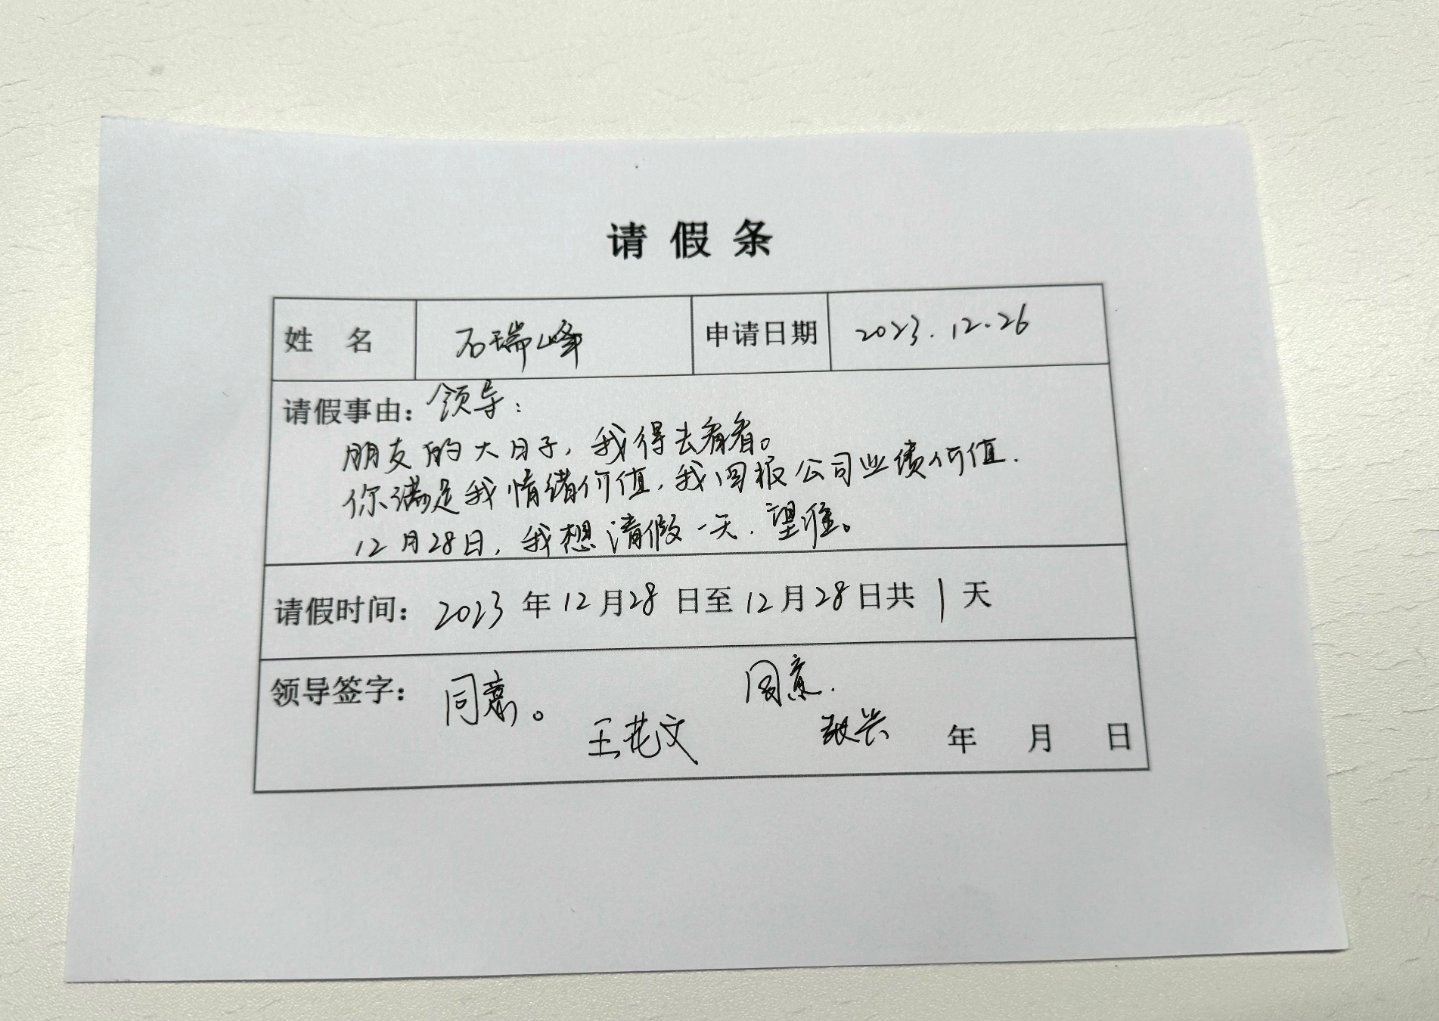 请假条
姓 名 石瑞峰 申请日期 2023.12.26
请假事由：领导：
朋友的大日子，我得去看看。
你满足我情绪价值，我回报公司业绩价值.
12月28日，我想请假一天.望准。
请假时间：2023年12月28日至12月28日共1天
领导签字：同意。 同意.
王花文 张兴 年 月 日